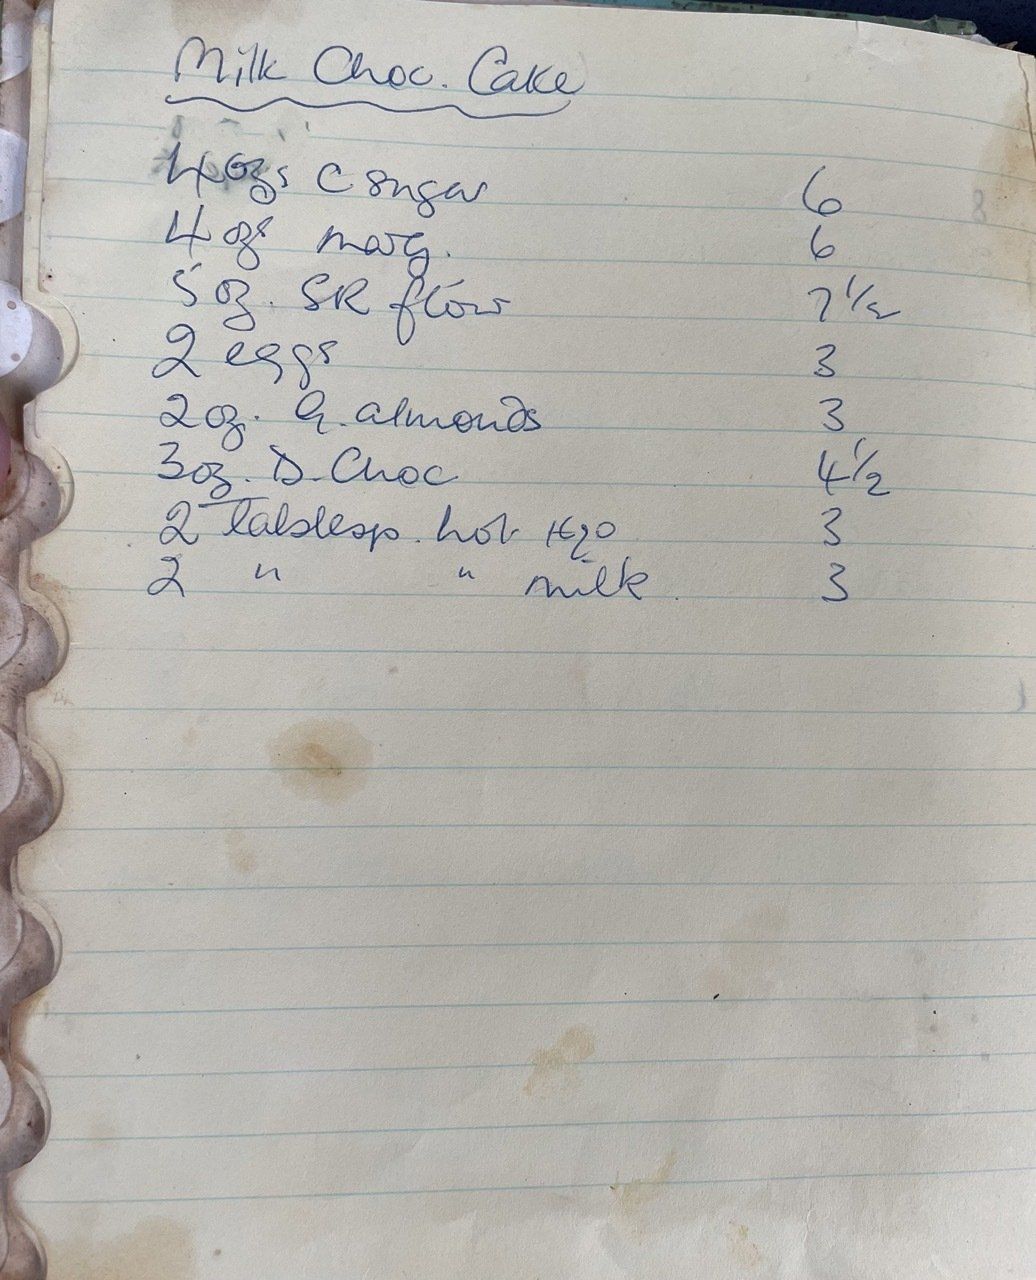 Milk Choc. Cake
4 ozs C sugar 6
4 ozs marg. 6
5 oz. SR flour 7 1/2
2 eggs 3
2 oz. G. almonds 3
3 oz. D. Choc 4 1/2
2 Tablesp. hot H2O 3
2 " " milk. 3